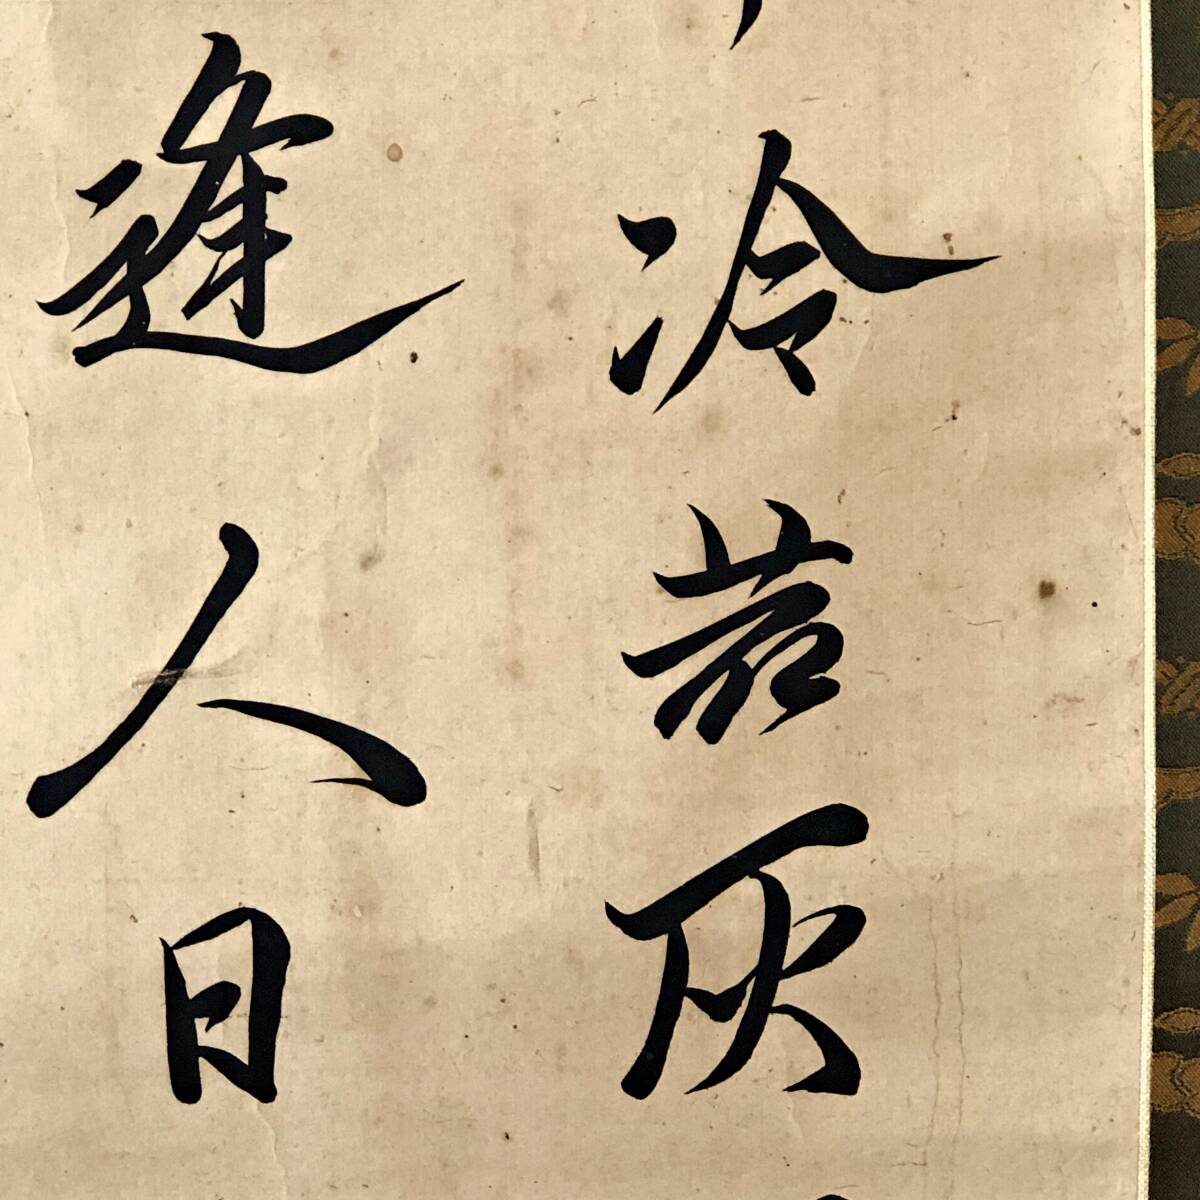 冷灰
逢人日